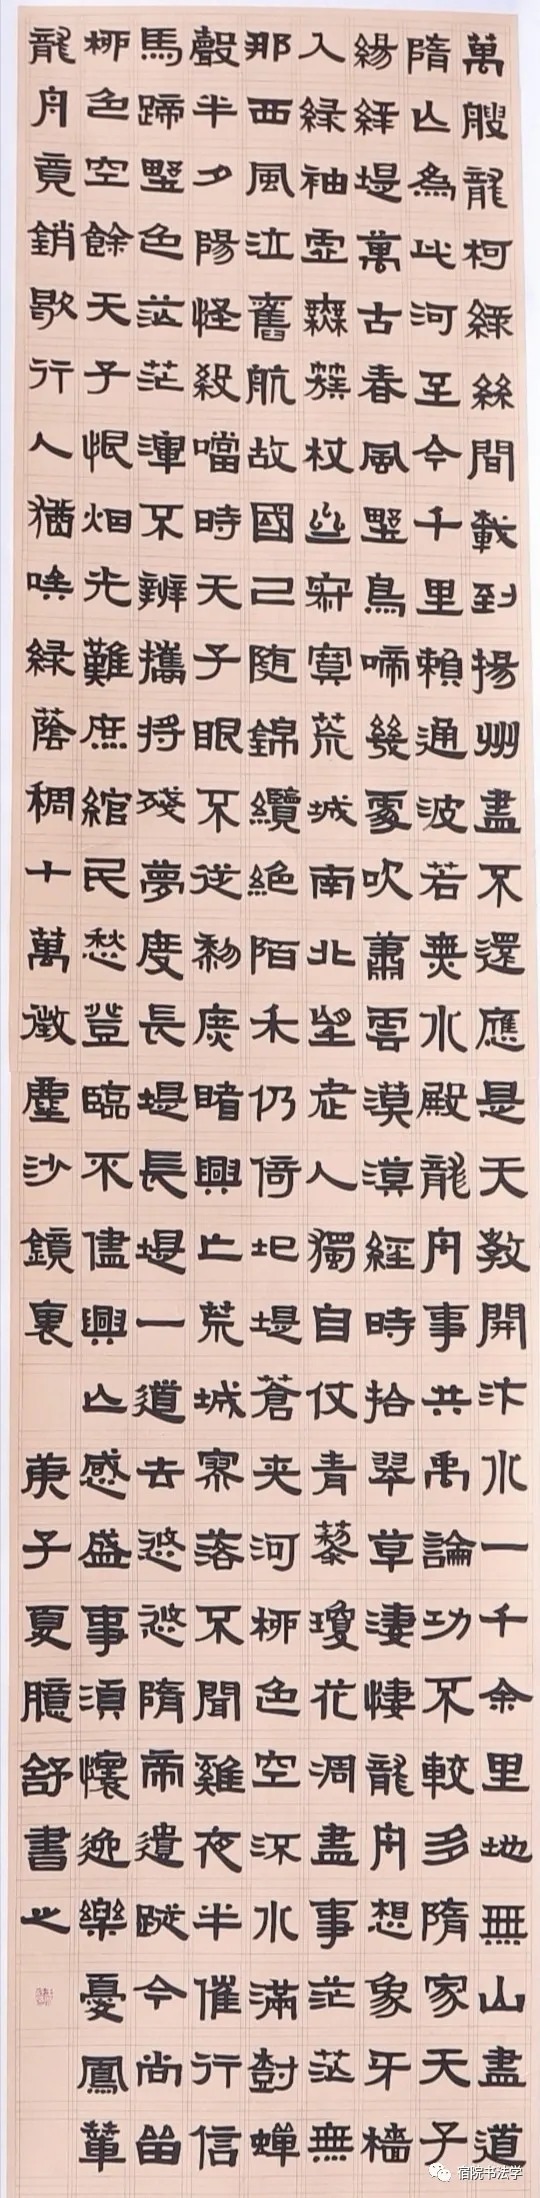 萬艘龍柯綠絲間載到揚州盡不還應是天教開汴水一千余里地無山盡道
隋亡為此河至今千里賴通波若無水殿龍舟事共禹論功不較多隋家天子
緆絳堤萬古春風野鳥啼幾處吹蕭雲漠漠經時拾翠草淒悽龍舟想象牙檣
入綠袖虛無簇杖幽寂寞荒城南北望老人獨自仗青藜瓊花凋盡事茫茫無
那西風泣舊航故國已随錦纜絕陌禾仍倚圮堤蒼夾河柳色空深水滿樹蟬
聲半夕陽怪殺噹時天子眼不從勑廣睹興亡荒城寥落不聞雞夜半催行信
馬蹄野色茫茫渾不辨攜將殘夢度長堤長堤一道去悠悠隋帝遺蹤今尚留
柳色空餘天子恨烟光難庶綰民愁登臨不儘興亡感盛事須懷逸樂憂鳳輦
龍舟竟銷歇行人猶唤綠蔭稠十萬徵塵沙鏡裏 庚子夏臆舒書之
宿院书法学